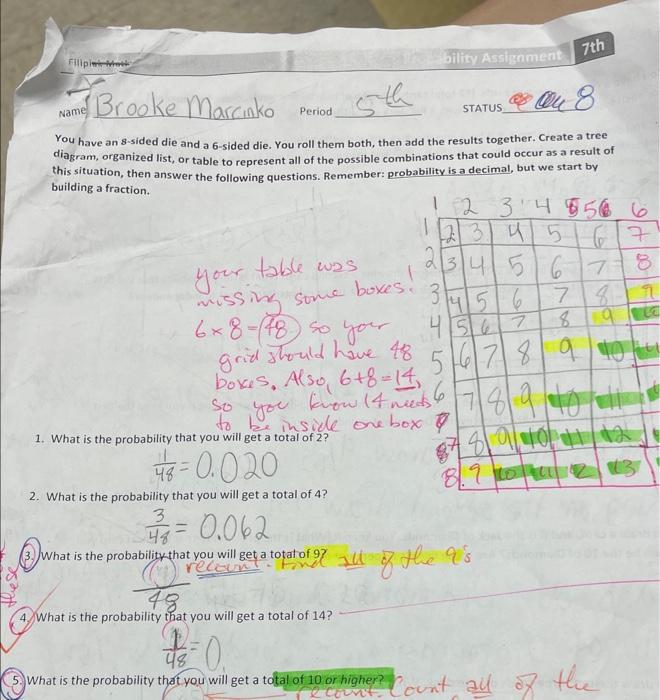 bility Assignment 7th
Name Brooke Marcinko Period 5th STATUS 8
You have an 8-sided die and a 6-sided die. You roll them both, then add the results together. Create a tree
diagram, organized list, or table to represent all of the possible combinations that could occur as a result of
this situation, then answer the following questions. Remember: probability is a decimal, but we start by
building a fraction.
1 2 3 4 5 6 6
1 2 3 4 5 6 7
2 3 4 5 6 7 8
3 4 5 6 7 8 9
4 5 6 7 8 9
5 6 7 8 9 10
6 7 8 9 10 11
7 8 9 10 11 12
8 9 10 11 12 13
your table was
missing some boxes!
6x8=48 so your
grid should have 48
boxes. Also, 6+8=14,
so you know 14 needs
to be inside one box
1. What is the probability that you will get a total of 2?
1/48 = 0.020
2. What is the probability that you will get a total of 4?
3/48 = 0.062
these
3. What is the probability that you will get a total of 9?
recount. Find all of the 9's
48
4. What is the probability that you will get a total of 14?
1/48 = 0.
5. What is the probability that you will get a total of 10 or higher?
recount. Count all of the